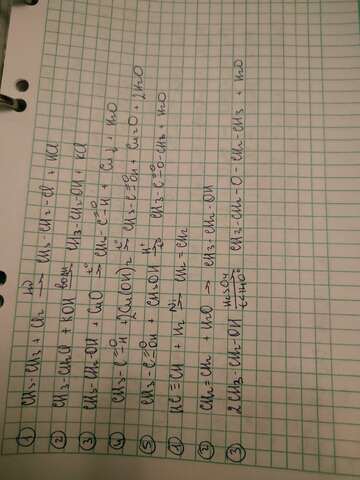 ① CH3-CH3 + Cl2 hν→ CH3-CH2-Cl + HCl
② CH3-CH2Cl + KOH водн→ CH3-CH2-OH + KCl
③ CH3-CH2-OH + CuO t°→ CH3-C(=O)-H + Cu↓ + H2O
④ CH3-C(=O)-H + 2Cu(OH)2 t°→ CH3-C(=O)-OH + Cu2O + 2H2O
⑤ CH3-C(=O)-OH + CH3OH H+→ CH3-C(=O)-O-CH3 + H2O
① HC≡CH + H2 Ni→ CH2=CH2
② CH2=CH2 + H2O → CH3-CH2-OH
③ 2CH3-CH2-OH H2SO4 t<140°→ CH3-CH2-O-CH2-CH3 + H2O